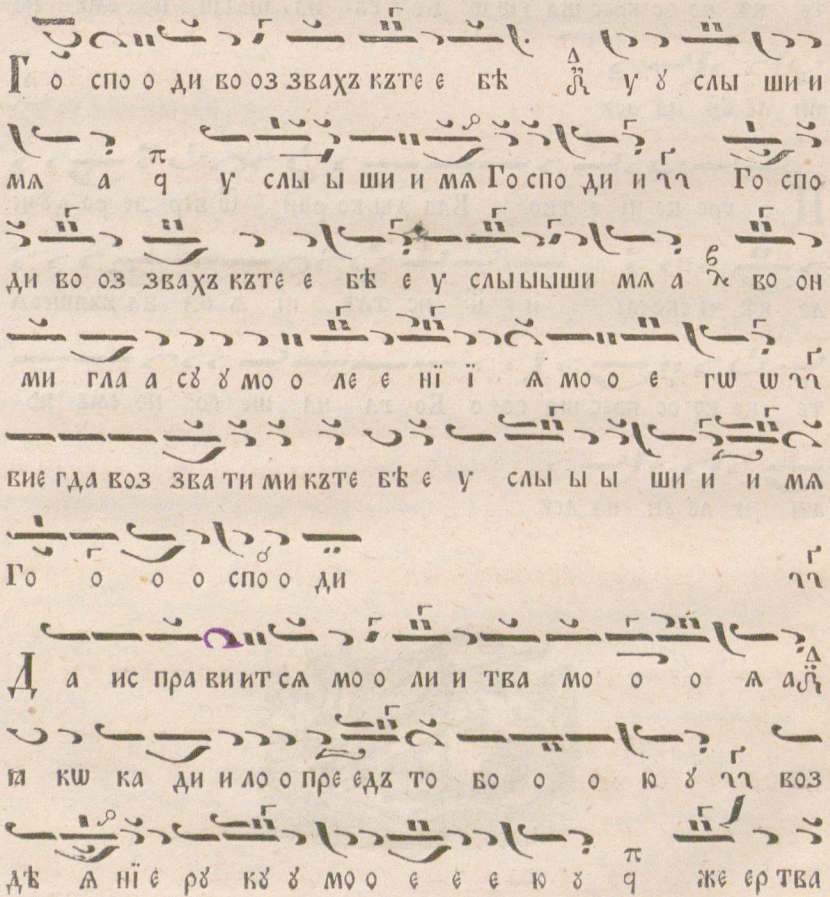 Го спо о ди во оз звахъ къте е бѣ у ꙋ слы ши и
мѧ а у слы ы ши и мѧ Го спо ди и Го спо
ди во оз звахъ къте е бѣ е у слыыыши мѧ а во он
ми гла а сꙋ ꙋ мо о ле е нї ї ѧ мо о е гѡ ѡ
вне гда воз зва ти ми къте бѣ е у слы ы ы ши и и мѧ
Го о о о спо о ди
Да ис пра ви ит сѧ мо о ли и тва мо о о ѧ а
ꙗ кѡ ка ди и ло о пре едъ то бо о о ю ꙋ воз
дѣ ѧ нї е рꙋ кꙋ ꙋ мо о е е е е ю у же ер тва